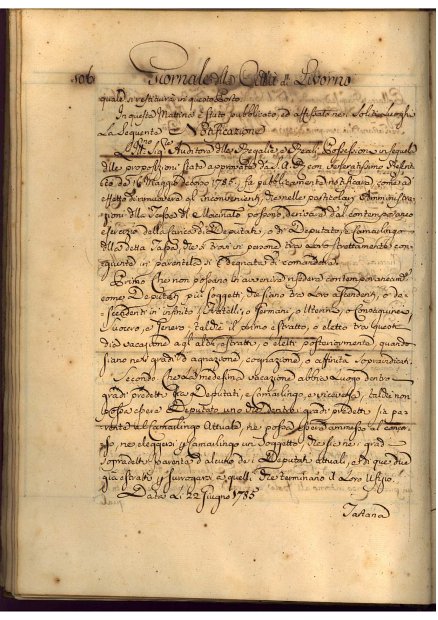 106 Giornale della Città di Livorno
quale si restituirà in questo Porto.
In questa Mattina è stata pubblicata, ed affissata nei Soliti Luoghi
La Seguente Notificazione
L'Ill.mo Sig.re Auditore delle Regalie, e Reali Possessioni in sequela
delle proposizioni state approvate da S. A. R. con Veneratissimo
de 16 Maggio decorso 1785. fa pubblicamente notificare, come ad
effetto di rimediare agl'inconvenienti, che nelle particolari Amministra-
zioni della Tassa di Macinato possono derivare dal contemporaneo
esercizio della Carica di Deputati, o di Deputato, e Camarlingo
di detta Tassa, che si trovi in persone tra loro strettamente con-
giunte in parentela si è degnata di comandare
Primo Che non possano in avvenire risedere contemporaneamente
come Deputati più soggetti, che siano tra loro ascendenti, o de-
scendenti in infinito, Fratelli, o Germani, o Uterini, o Consanguinei,
Suocero, e Genero, talchè il primo estratto, o eletto tra questi
dia vacazione agl'altri estratti, o eletti posteriormente quando
siano nei gradi di agnazione, cognazione, o affinità sopraindicati.
Secondo Che La medesima vacazione abbia Luogo dentro
gradi predetti fra Deputati, e Camarlingo, e viceversa, talchè non
possa essere Deputato uno che dentro i gradi predetti sia pa-
rente al Camarlingo Attuale, nè possa essere ammesso al concor-
so, nè eleggersi per Camarlingo un Soggetto, che sia nei gradi
sopradetti parente d'alcuno dei Deputati attuali, o di que che
già estratti per surrogarsi a quelli, che terminano il Loro Ufizio.
Data Li 22 Giugno 1785